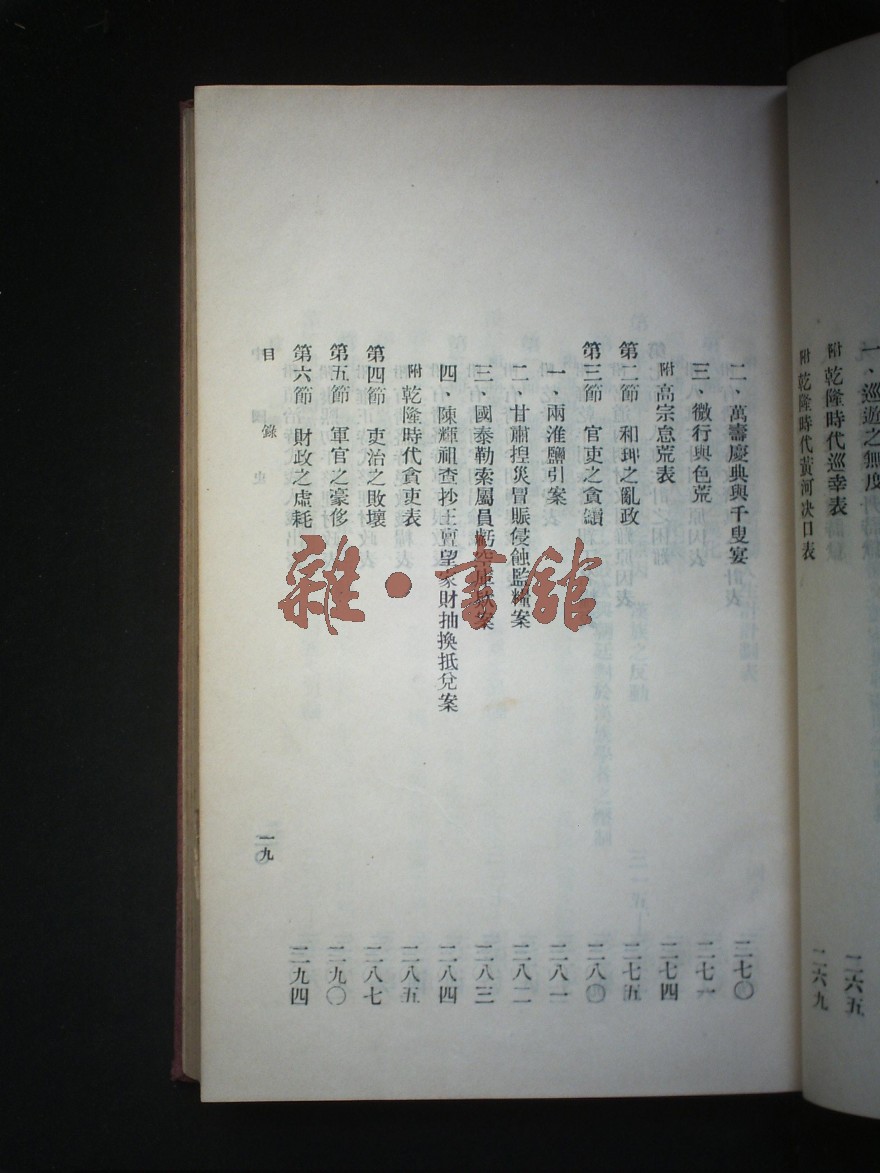 一、巡遊之無度 二六五
附 乾隆時代巡幸表
附 乾隆時代黃河決口表 二六九
二、萬壽慶典與千叟宴 二七〇
三、微行與色荒 二七一
附 高宗怠荒表 二七四
第二節 和珅之亂政 二七五
第三節 官吏之貪黷 二八〇
一、兩淮鹽引案 二八一
二、甘肅揑災冒賑侵蝕監糧案 二八二
三、國泰勒索屬員虧空庫款案 二八三
四、陳輝祖查抄王亶望家財抽換抵兌案 二八四
附 乾隆時代貪吏表 二八五
第四節 吏治之敗壞 二八七
第五節 軍官之豪侈 二九〇
第六節 財政之虛耗 二九四
目錄 一九
雜·書館